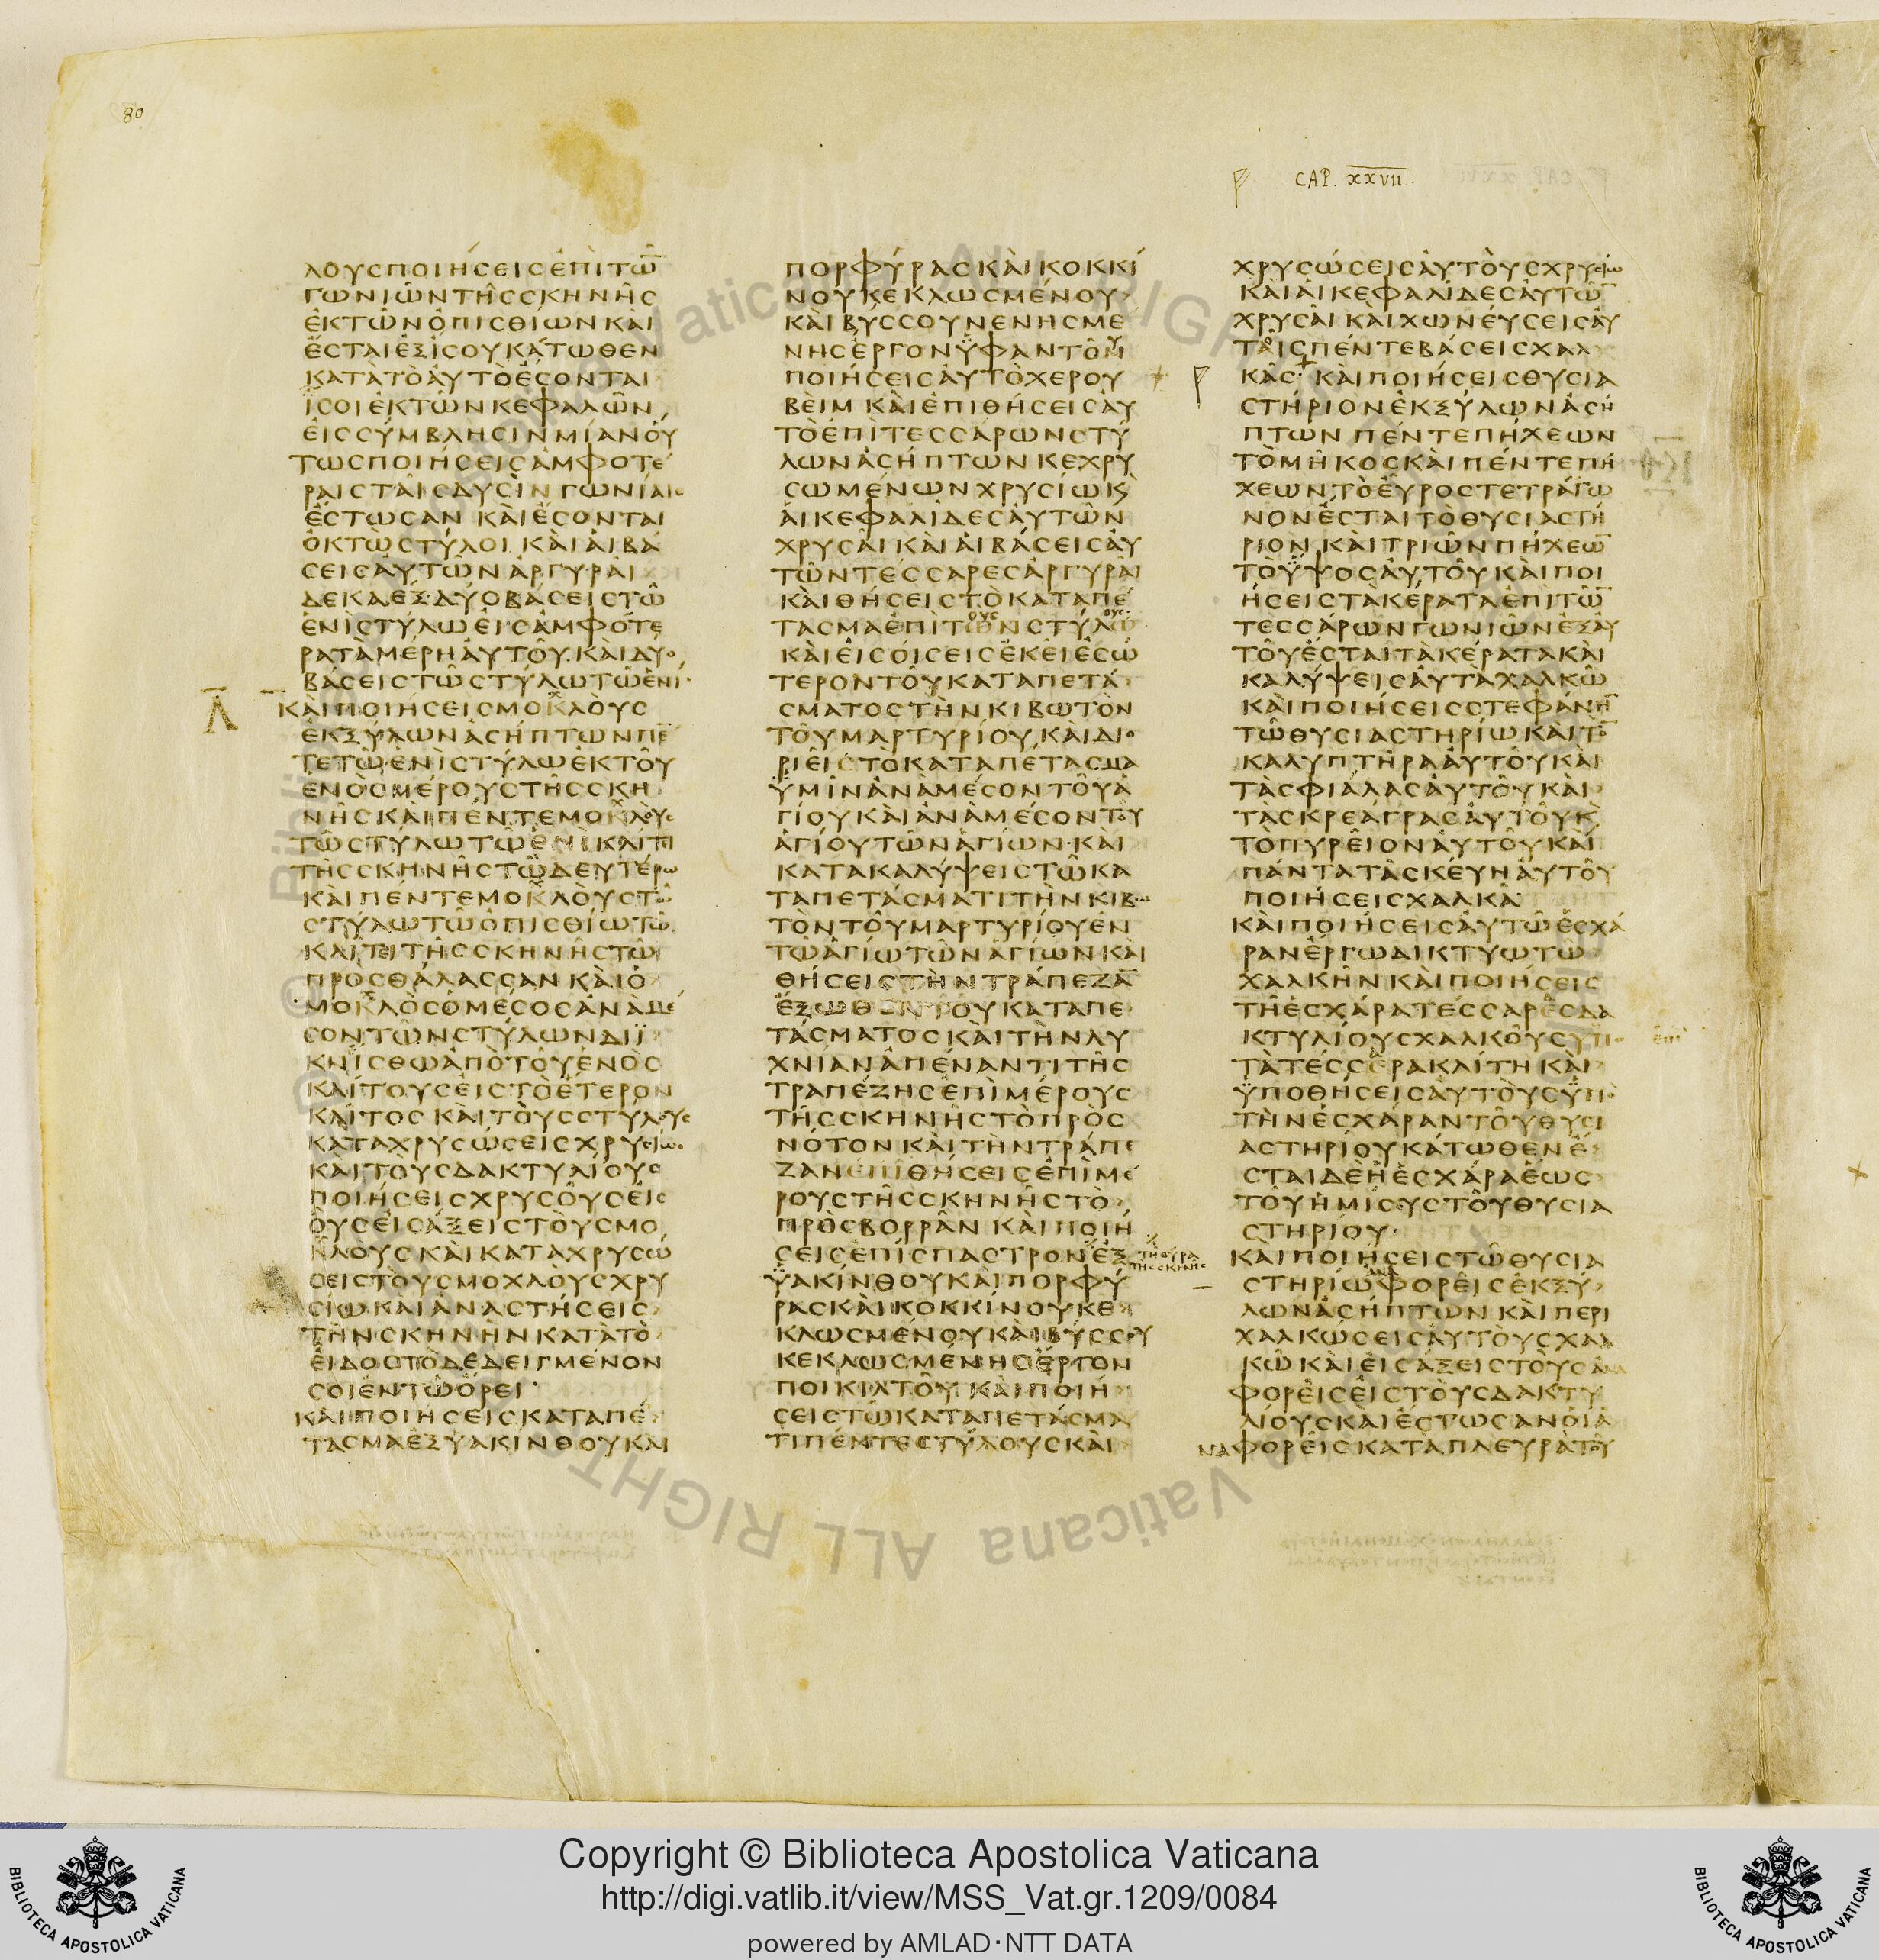 80
CAP. XXVII.
λουσποιήσεισἐπὶτῶ̅
γωνιῶντῆσσκηνῆσ
ἐκτῶνὀπισθίωνκαὶ
ἔσταιἐξίσουκάτωθεν
κατὰτὸαὐτὸἔσονται
ἴσοιἐκτῶνκεφαλῶν
εἰσσύμβλησινμίανοὕ
τωσποιήσεισἀμφοτέ
ραισταῖσδυσὶνγωνίαισ
ἔστωσανκαὶἔσονται
ὀκτωστύλοικαὶαἱβά
σεισαὐτῶνἀργυραῖ
δεκαέξδύοβάσειστῶ̅
ἑνὶστύλωεἰσἀμφότε
ρατὰμέρηαὐτοῦκαὶδύο
βάσειστῶστύλωτῶἑνι
Λ̅
καὶποιήσεισμοκλοὺσ
ἐκξύλωνἀσήπτωνπέ̅
τετῶἑνὶστύλωἐκτοῦ
ἑνὸσμέρουστῆσσκη
νῆσκαὶπέντεμοκλοὺσ
τῶστύλωτῶἑνὶκλίτι
τῆσσκηνῆστῶδευτέρω
καὶπέντεμοκλοὺστῶ
στύλωτῶὀπισθίωτῶ
κλίτειτῆσσκηνῆστῶ
πρὸσθάλασσανκαὶὁ
μοκλὸσὁμέσοσἀνὰμέ
σοντῶνστύλωνδιϊ
κνίσθωἀπὸτοῦἑνὸσ
κλίτουσεἰστὸἕτερον
κλίτοσκαὶτοὺσστύλουσ
καταχρυσώσεισχρυσίω
καὶτουσδακτυλίουσ
ποιήσεισχρυσοῦσεἰσ
οὓσεἰσάξειστοὺσμο
κλοὺσκαὶκαταχρυσώ
σειστοὺσμοχλοὺσχρυ
σίωκαὶἀναστήσεισ
τὴνσκηνὴνκατὰτὸ
εἶδοστὸδεδειγμένον
σοιἐντῶὄρει
καὶποιήσεισκαταπέ
τασμαἐξὑακίνθουκαι
πορφύρασκαὶκοκκί
νουκεκλωσμένου
καὶβύσσουνενησμέ
νησἔργονὑφαντοῦ
ποιήσεισαὐτὸχερου
βεὶμκαὶἐπιθήσεισαὐ
τὸἐπὶτεσσάρωνστύ
λωνἀσήπτωνκεχρυ
σωμένωνχρυσίωκ̀
αἱκεφαλίδεσαὐτῶν
χρυσαῖκαὶαἱβάσεισαὐ
τῶντέσσαρεσἀργυραῖ
καὶθήσειστὸκαταπέ
ουσ ουσ
τασμαἐπὶτῶνστύλω̅
καὶεἰσοίσεισἐκεῖἐσώ
τεροντοῦκαταπετά
σματοστὴνκιβωτὸν
τοῦμαρτυρίουκαὶδιο
ριεῖστὸκαταπέτασμα
ὑμῖνἀνὰμέσοντοῦἁ
γίουκαὶἀνὰμέσοντοῦ
ἁγίουτῶνἁγίωνκαὶ
κατακαλύψειστῶκα
ταπετάσματιτὴνκιβω
τὸντοῦμαρτυρίουἐν
τῶἁγίωτῶνἁγίωνκαὶ
θήσειστὴντράπεζα̅
ἔξωθεντοῦκαταπε
τάσματοσκαὶτὴνλυ
χνίανἀπέναντιτῆσ
τραπέζησἐπὶμέρουσ
τῆσσκηνῆστὸπρὸσ
νότονκαὶτὴντράπε
ζανἐπιθήσεισἐπὶμέ
ρουστῆσσκηνῆστὸ
πρὸσβορρᾶνκαὶποιή
σεισἐπίσπαστρονἐξ
τῆθύρα
τῆσσκηνῆσ
ὑακίνθουκαὶπορφύ
ρασκαὶκοκκίνουκε
κλωσμένουκαὶβύσσου
κεκλωσμένησἔργον
ποικιλτοῦκαὶποιή
σειστῶκαταπετάσμα
τιπέντεστύλουσκαὶ
χρυσώσεισαὐτοὺσχρυσίω
καὶαἱκεφαλίδεσαὐτῶ̅
χρυσαῖκαὶχωνεύσεισαὐ
τοῖσπέντεβάσεισχαλ
κᾶσκαὶποιήσεισθυσια
στήριονἐκξύλωνἀσή
πτωνπέντεπήχεων
τὸμῆκοσκαὶπέντεπή
χεωντὸεὖροστετράγω
νονἔσταιτὸθυσιαστή
ριονκαὶτριῶνπήχεω̅
τὸὕψοσαὐτοῦκαὶποι
ήσειστὰκέραταἐπὶτῶ̅
τεσσάρωνγωνιῶνἐξαὐ
τοῦἔσταιτὰκέρατακαὶ
καλύψεισαὐτὰχαλκῶ
καὶποιήσεισστεφάνη̅
τῶθυσιαστηρίωκαὶτὸ̅
καλυπτῆρααὐτοῦκαὶ
τὰσφιάλασαὐτοῦκαὶ
τὰσκρεάγρασαὐτοῦκ̀
τὸπυρεῖοναὐτοῦκαὶ
πάντατὰσκεύηαὐτοῦ
ποιήσεισχαλκᾶ
καὶποιήσεισαὐτῶἐσχά
ρανἔργωδικτυωτῶ
χαλκῆνκαὶποιήσεισ
τῆἐσχάρατέσσαρεσδα
κτυλίουσχαλκοῦσὑπὸ
ἐπὶ
τὰτέσσερακλίτηκαὶ
ὑποθήσεισαὐτοὺσὑπὸ
τὴνἐσχάραντοῦθυσι
αστηρίουκάτωθενἔ
σταιδὲἡἐσχάραἕωσ
τοῦἡμίσουστοῦθυσια
στηρίου
καὶποιήσειστῶθυσια
ανα
στηρίωφορεῖσἐκξύ
λωνἀσήπτωνκαὶπερι
χαλκώσεισαὐτοὺσχαλ
κῶκαὶεἰσάξειστοὺσανα
φορεῖσεἰστοὺσδακτυ
λίουσκαὶἔστωσανοἱἀ
ναφορεῖσκατὰπλευρὰτοῦ
Copyright © Biblioteca Apostolica Vaticana
http://digi.vatlib.it/view/MSS_Vat.gr.1209/0084
powered by AMLAD·NTT DATA
BIBLIOTECA APOSTOLICA VATICANA
BIBLIOTECA APOSTOLICA VATICANA